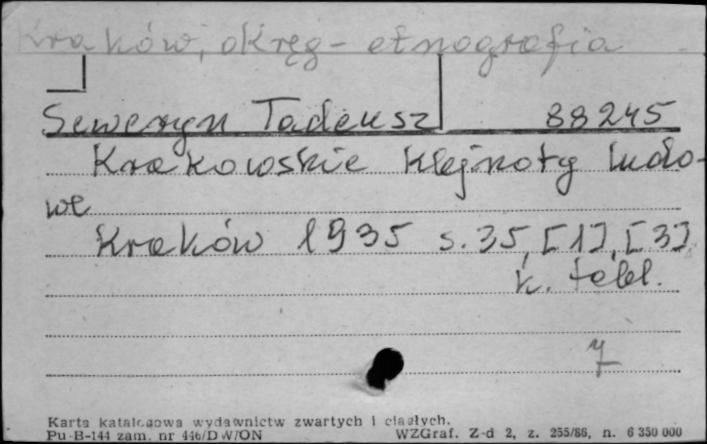 Kraków, okręg - etnografia
Seweryn Tadeusz 88245
Krakowskie klejnoty ludo-
we
Kraków 1935 s. 35, [1], [3]
k. tabl.
7
Karta katalogowa wydawnictw zwartych i ciągłych.
Pu-B-144 zam. nr 446/DW/ON WZGraf. Z-d 2, z. 255/86, n. 6 350 000